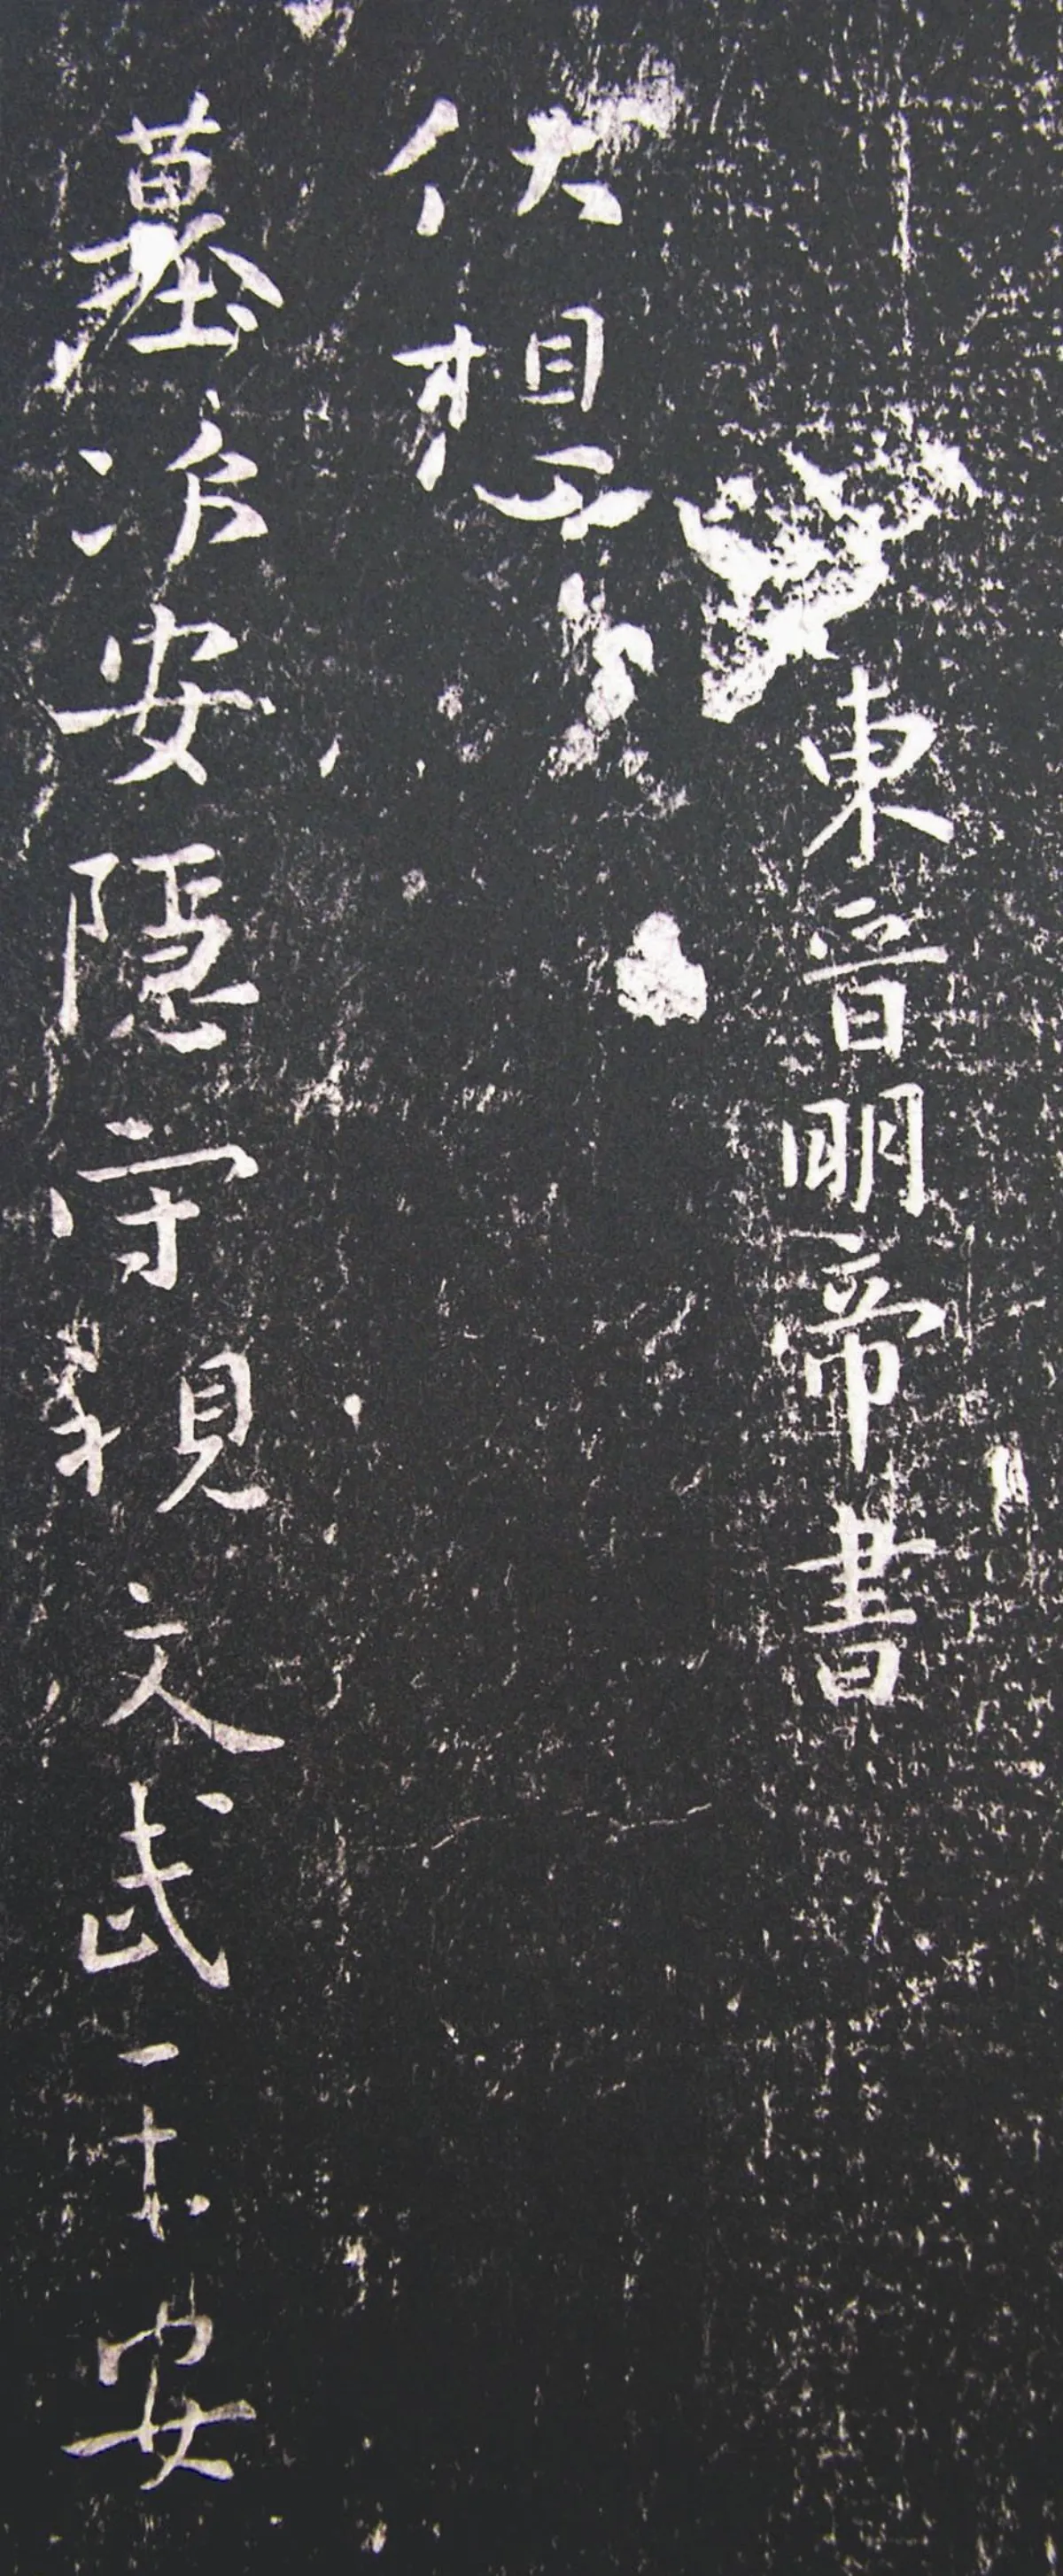 東晉明帝書
伏想
墓次安隱守視文武安